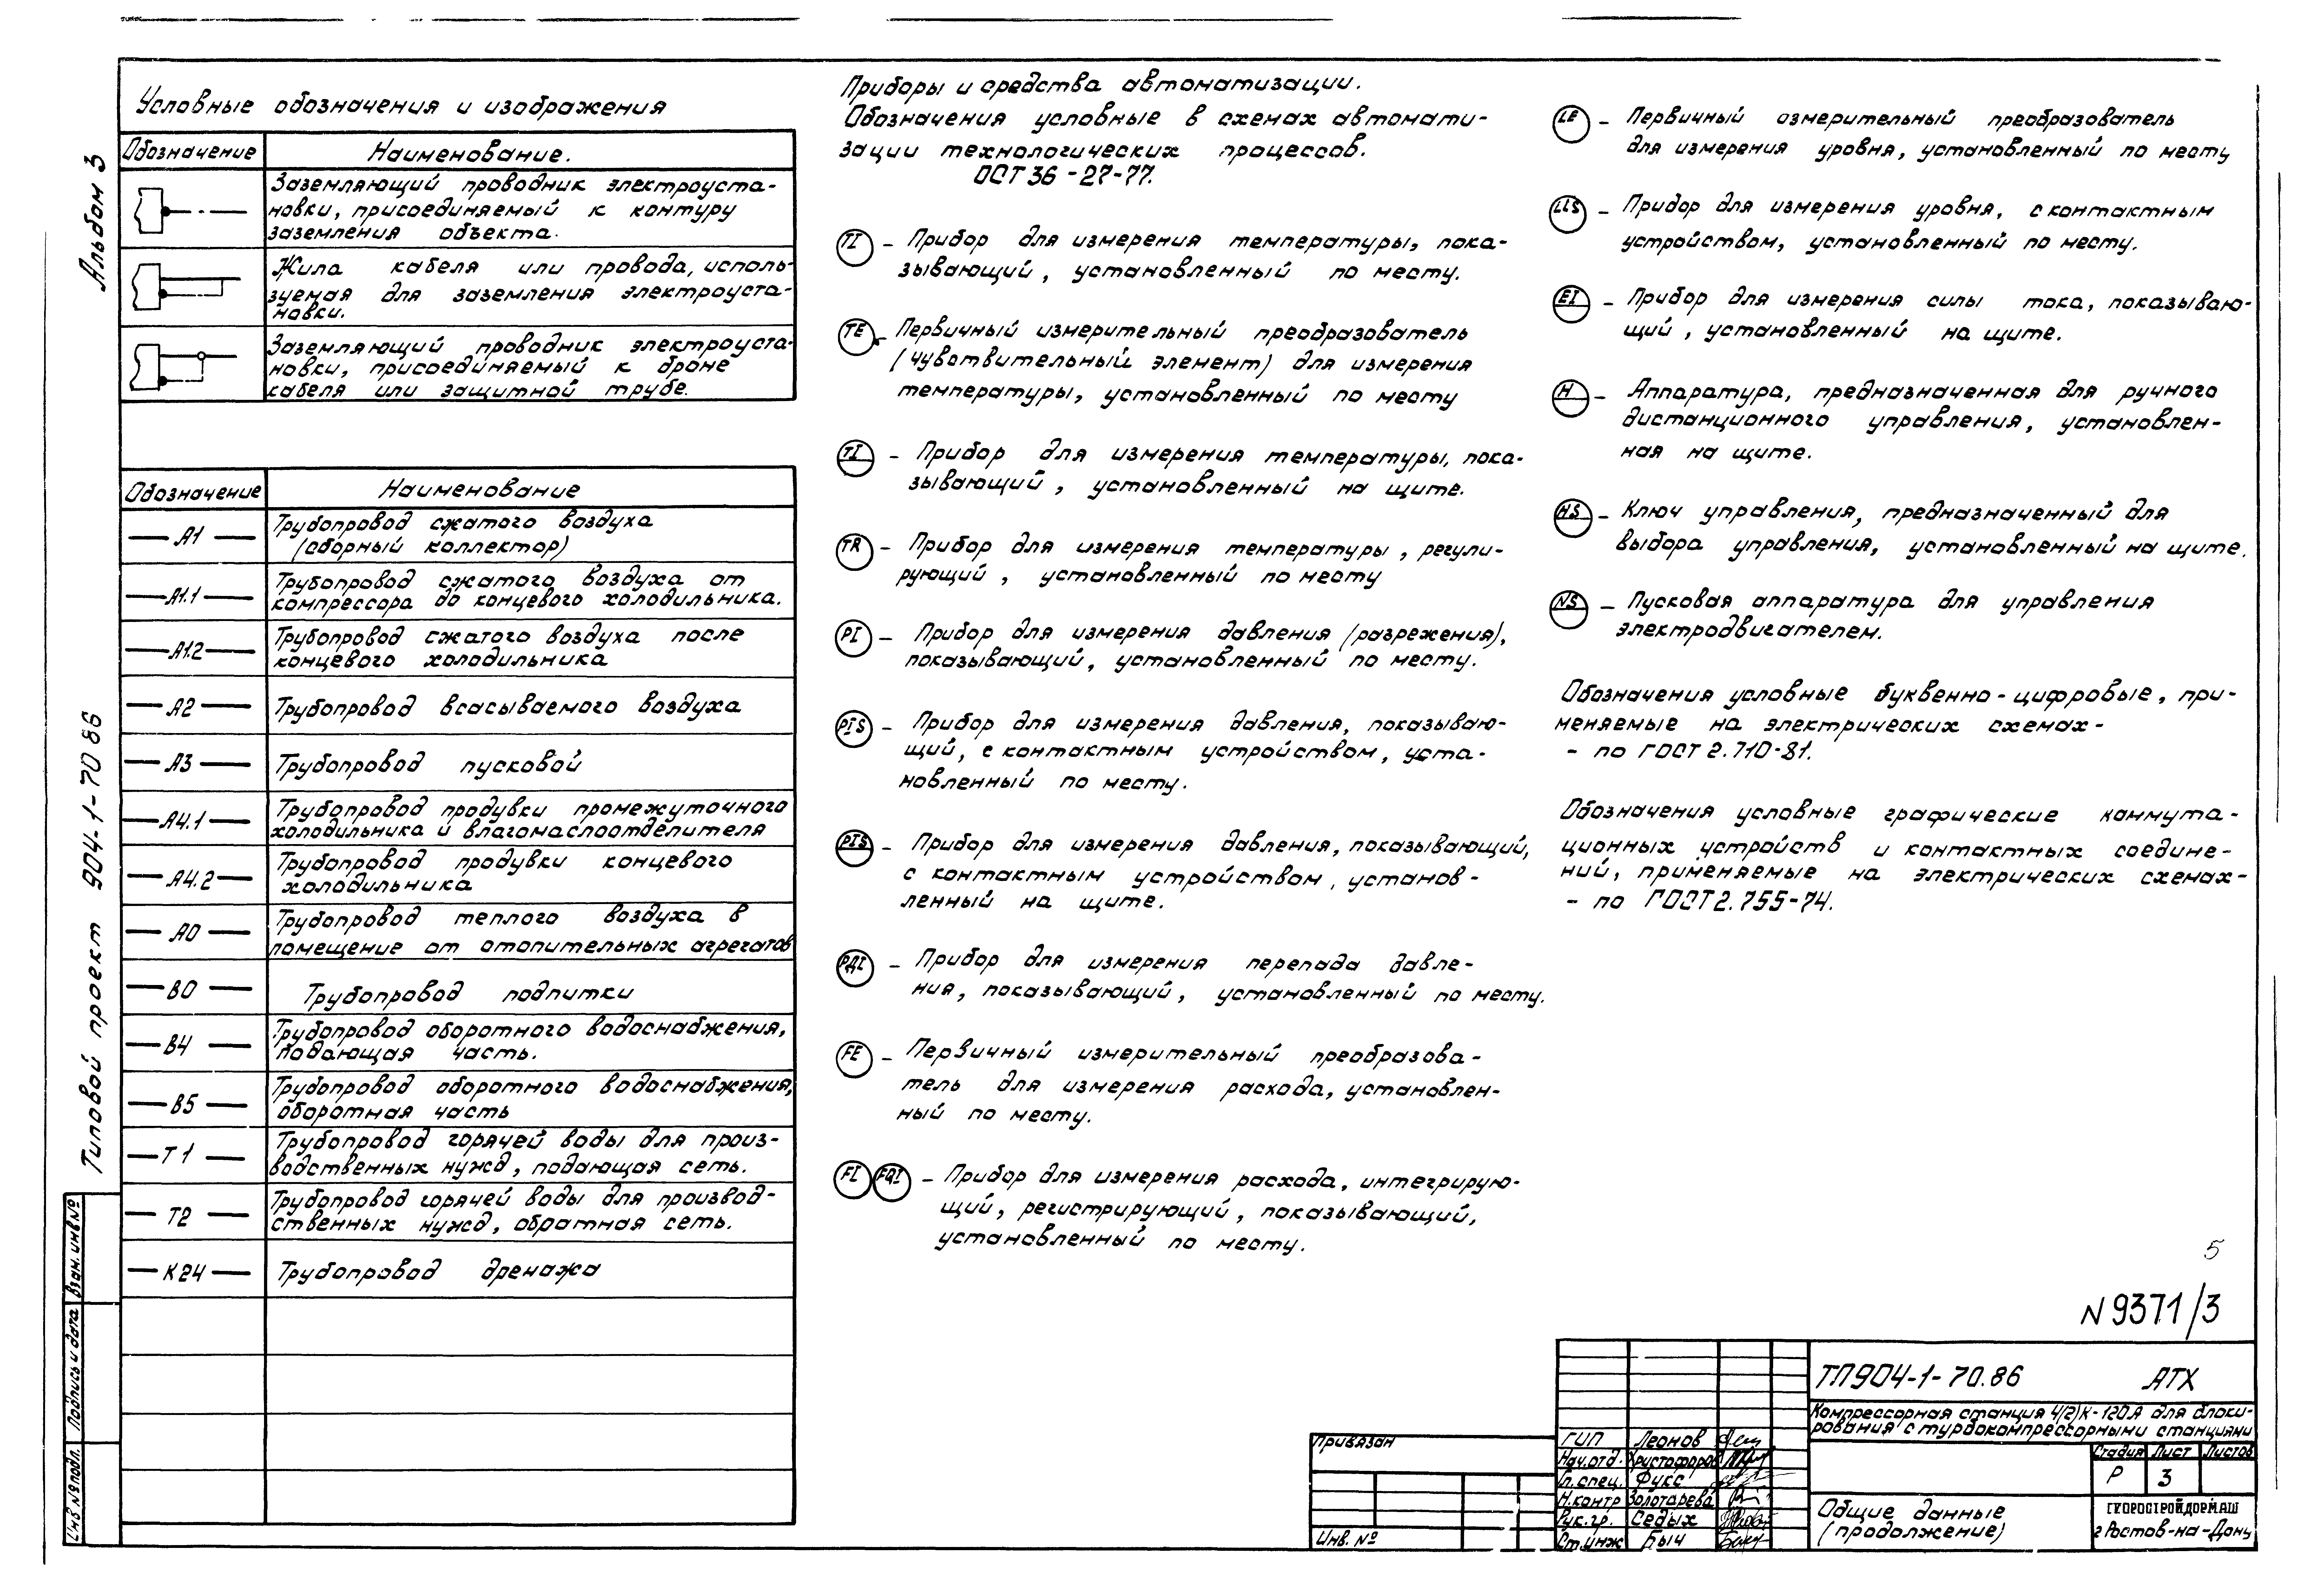 Альбом 3
Типовой проект 904-1-70 86
Условные обозначения и изображения
Обозначение Наименование.
Заземляющий проводник электроуста-
новки, присоединяемый к контуру
заземления объекта.
Жила кабеля или провода, исполь-
зуемая для заземления электроуста-
новки.
Заземляющий проводник электроуста-
новки, присоединяемый к броне
кабеля или защитной трубе.
Обозначение Наименование
А1 Трубопровод сжатого воздуха
(сборный коллектор)
А1.1 Трубопровод сжатого воздуха от
компрессора до концевого холодильника.
А1.2 Трубопровод сжатого воздуха после
концевого холодильника
А2 Трубопровод всасываемого воздуха
А3 Трубопровод пусковой
А4.1 Трубопровод продувки промежуточного
холодильника и влагомаслоотделителя
А4.2 Трубопровод продувки концевого
холодильника
А0 Трубопровод теплого воздуха в
помещение от отопительных агрегатов
В0 Трубопровод подпитки
В4 Трубопровод оборотного водоснабжения,
подающая часть.
В5 Трубопровод оборотного водоснабжения,
оборотная часть
Т1 Трубопровод горячей воды для произ-
водственных нужд, подающая сеть.
Т2 Трубопровод горячей воды для производ-
ственных нужд, обратная сеть.
К24 Трубопровод дренажа
Приборы и средства автоматизации.
Обозначения условные в схемах автомати-
зации технологических процессов.
ОСТ 36-27-77.
TI - Прибор для измерения температуры, пока-
зывающий, установленный по месту.
TE - Первичный измерительный преобразователь
(чувствительный элемент) для измерения
температуры, установленный по месту
TI - Прибор для измерения температуры, пока-
зывающий, установленный на щите.
TR - Прибор для измерения температуры, регули-
рующий, установленный по месту
PI - Прибор для измерения давления (разрежения),
показывающий, установленный по месту.
PIS - Прибор для измерения давления, показываю-
щий, с контактным устройством, уста-
новленный по месту.
PIS - Прибор для измерения давления, показывающий,
с контактным устройством, установ-
ленный на щите.
РДI - Прибор для измерения перепада давле-
ния, показывающий, установленный по месту.
FE - Первичный измерительный преобразова-
тель для измерения расхода, установлен-
ный по месту.
FI FQI - Прибор для измерения расхода, интегрирую-
щий, регистрирующий, показывающий,
установленный по месту.
LE - Первичный измерительный преобразователь
для измерения уровня, установленный по месту
LLS - Прибор для измерения уровня, с контактным
устройством, установленный по месту.
EI - Прибор для измерения силы тока, показываю-
щий, установленный на щите.
H - Аппаратура, предназначенная для ручного
дистанционного управления, установлен-
ная на щите.
HS - Ключ управления, предназначенный для
выбора управления, установленный на щите.
NS - Пусковая аппаратура для управления
электродвигателем.
Обозначения условные буквенно-цифровые, при-
меняемые на электрических схемах-
- по ГОСТ 2.710-81.
Обозначения условные графические коммута-
ционных устройств и контактных соедине-
ний, применяемые на электрических схемах-
- по ГОСТ 2.755-74.
5
N 9371/3
ТП904-1-70.86 АТХ
Компрессорная станция 4(2)К-120А для блоки-
рования с турбокомпрессорными станциями
Стадия Лист Листов
Р 3
Общие данные
(продолжение)
ГИПРОСТРОЙДОРМАШ
г Ростов-на-Дону
ГИП Леонов
Нач.отд. Христофоров
Гл.спец. Фукс
Н.контр Золотарева
Рук.гр. Седых
Ст.инж Быч
Привязан
Инв. №
Взам. инв №
Подпись и дата
Инв № подл.